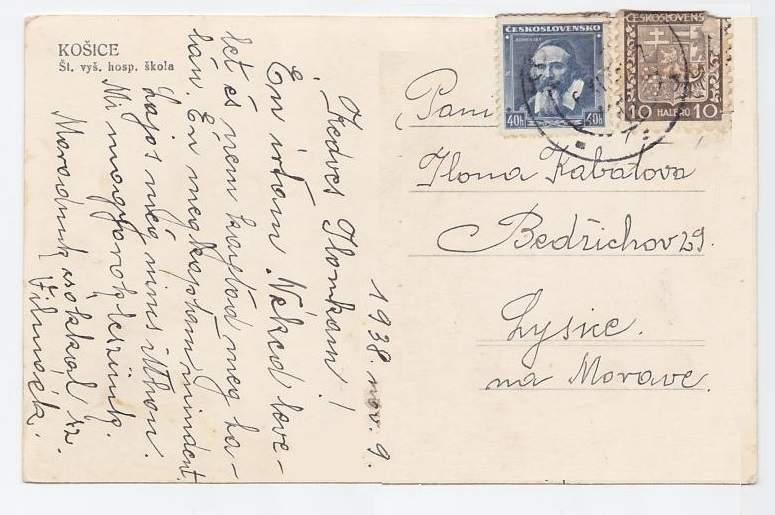 KOŠICE
Št. vyš. hosp. škola
1938. nov. 9.
Kedves Ilonkám!
Én irtam Néked leve-
let és nem kaptad meg ta-
lán. Én megkaptam mindent.
Lajos még nincs itthon.
Mi magyarok leszünk.
Maradunk csókkal az
ČESKOSLOVENSKO
40h 40h
ČESKOSLOVENS
10 HALÉŘŮ 10
Pani
Ilona Kabatova
Bedřichov 29.
Lysice.
na Morave.